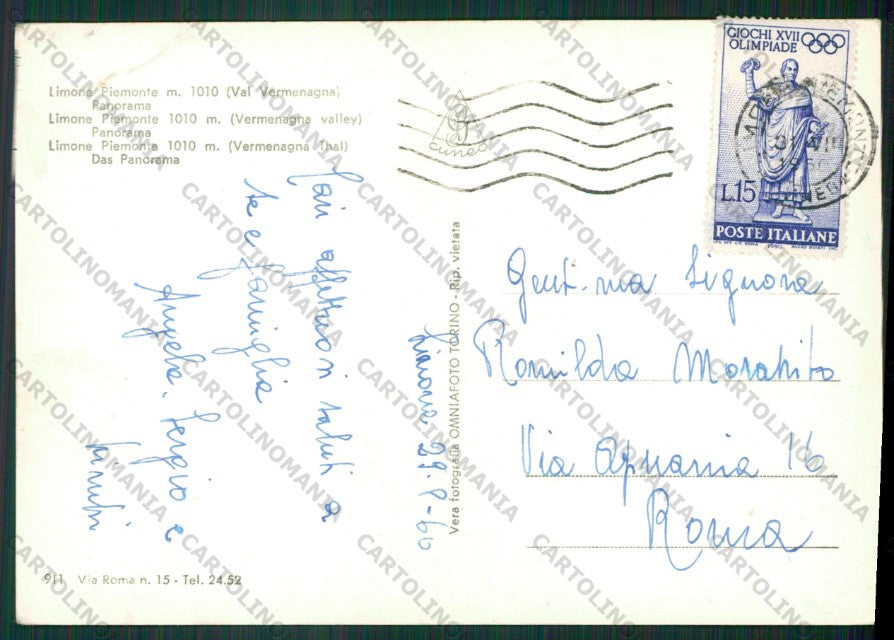 Limone Piemonte m. 1010 (Val Vermenagna)
Panorama
Limone Piemonte 1010 m. (Vermenagna valley)
Panorama
Limone Piemonte 1010 m. (Vermenagna Thal)
Das Panorama
cuneo
GIOCHI XVII
OLIMPIADE
L.15
POSTE ITALIANE
1960
Cari affettuosi saluti a
te e famiglia
Angela. Sergio e
Limone 29-8-60
Vera fotografia OMNIAFOTO TORINO - Rip. vietata
Gent.ma Signora
Romilda Morabito
Via Apuania 16
Roma
911 Via Roma n. 15 - Tel. 24.52
CARTOLINOMANIA